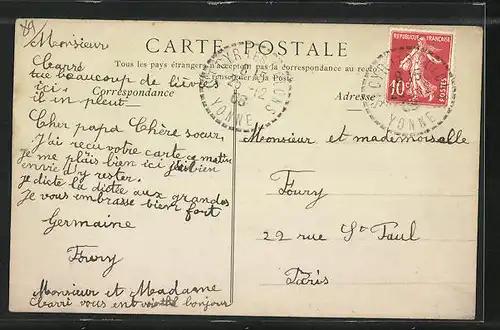 89
Monsieur
Carré
tue beaucoup de lièvres
ici.
il en pleut
Cher papa Chère soeur,
J'ai reçu votre carte ce matin
je me plais bien ici j'ai bien
envie d'y rester.
je dicte la dictée aux grandes
je vous embrasse bien fort
Germaine
Foury
Monsieur et Madame
Carré vous bonjour
CARTE POSTALE
Tous les pays étrangers n'acceptent pas la correspondance au recto
(Se renseigner à la Poste
Correspondance
Adresse
REPUBLIQUE FRANÇAISE
10
POSTES
ST CYR LES COLONS
25-12
08
YONNE
Monsieur et mademoiselle
Foury
22 rue St Paul
Paris